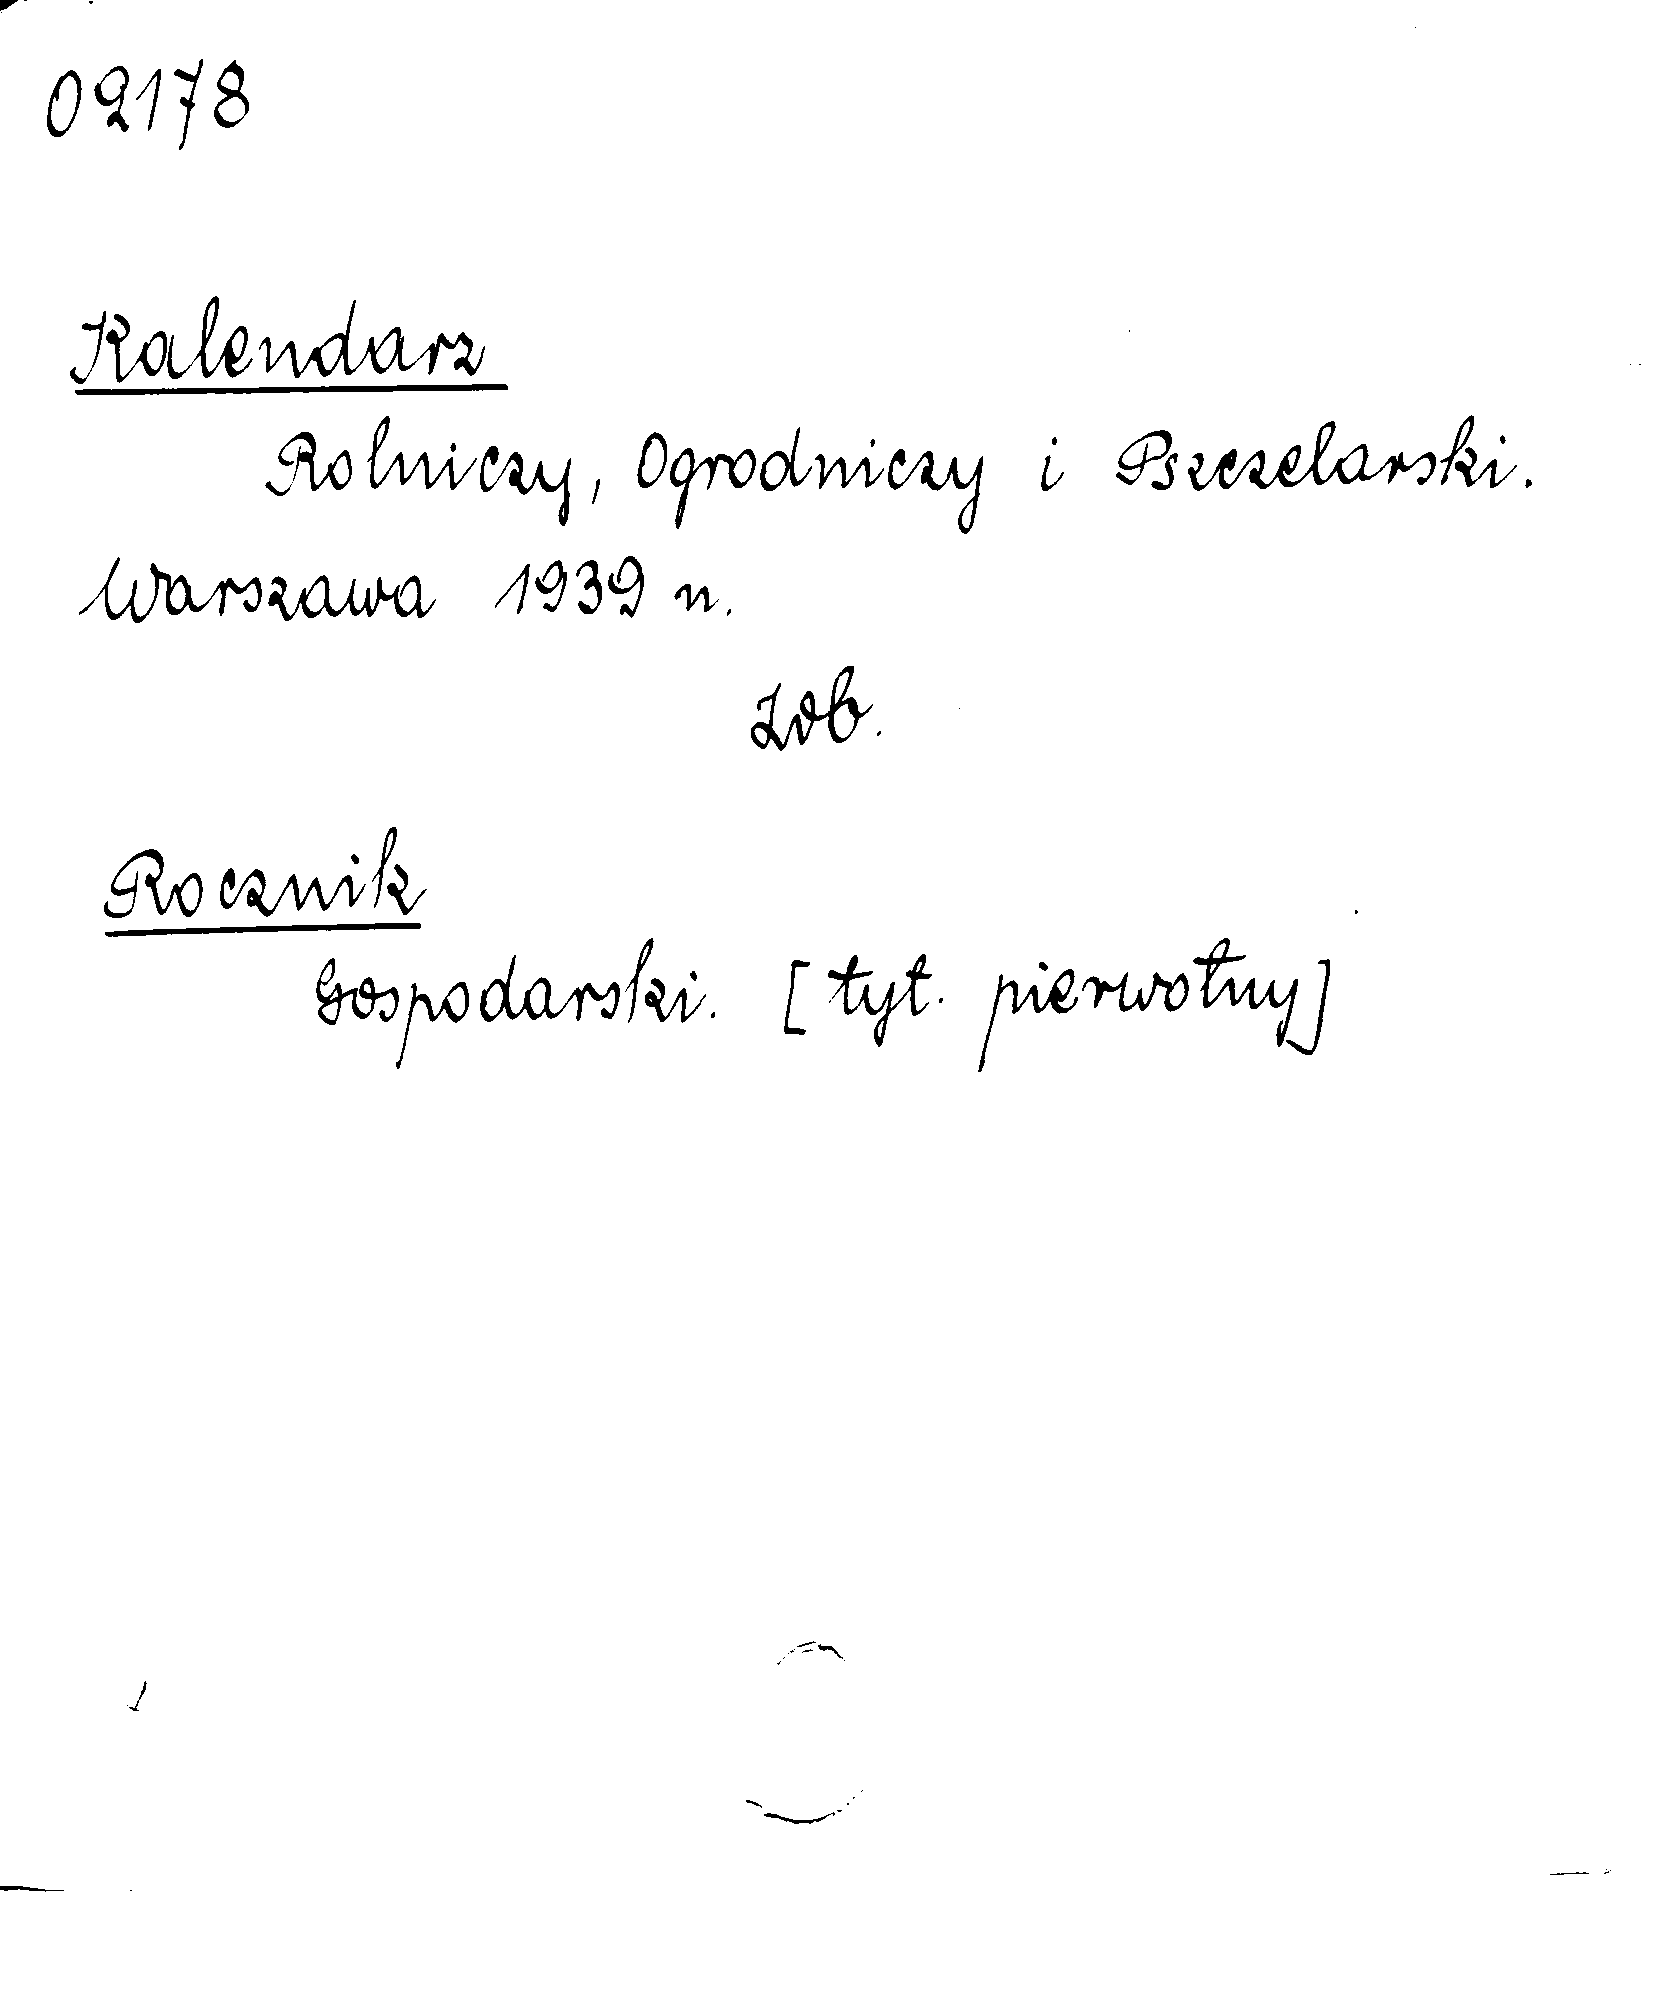 02178
Kalendarz
Rolniczy, Ogrodniczy i Pszczelarski.
Warszawa 1939 n.
Zob.
Rocznik
Gospodarski. [tyt. pierwotny]